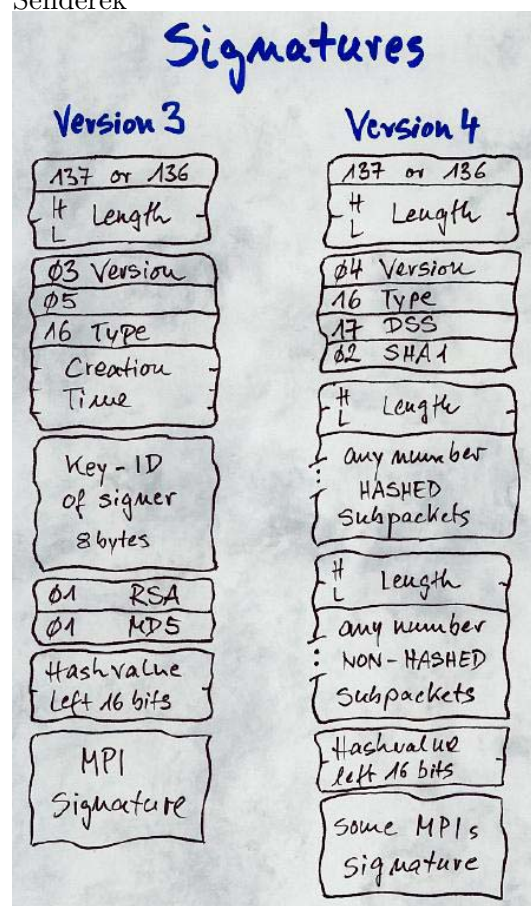 Senderek
Signatures
Version 3
137 or 136
H
L
Length
Ø3 Version
Ø5
16 Type
Creation
Time
Key-ID
of signer
8 bytes
Ø1 RSA
Ø1 MD5
Hashvalue
Left 16 bits
MPI
Signature
Version 4
137 or 136
H
L
Length
Ø4 Version
16 Type
17 DSS
Ø2 SHA1
H
L
Length
any number
HASHED
Subpackets
H
L
Length
any number
NON-HASHED
Subpackets
Hashvalue
left 16 bits
Some MPIs
Signature